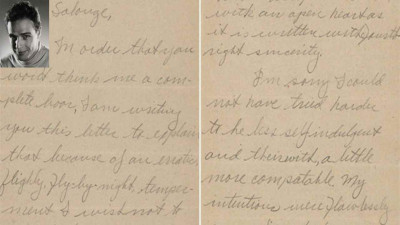 Solange,
In order that you
won't think me a com-
plete boor, I am writing
you this letter to explain
that because of an erratic
flighty, fly-by-night, temper-
ment I wish not to
with an open heart as
it is written with
right sincerity
I'm sorry I could
not have tried harder
to be less self indulgent
and therewith, a little
more compatable My
intentions were flawlessly